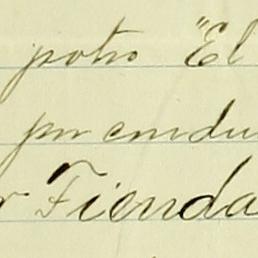 potro "El
por condu
r Tienda